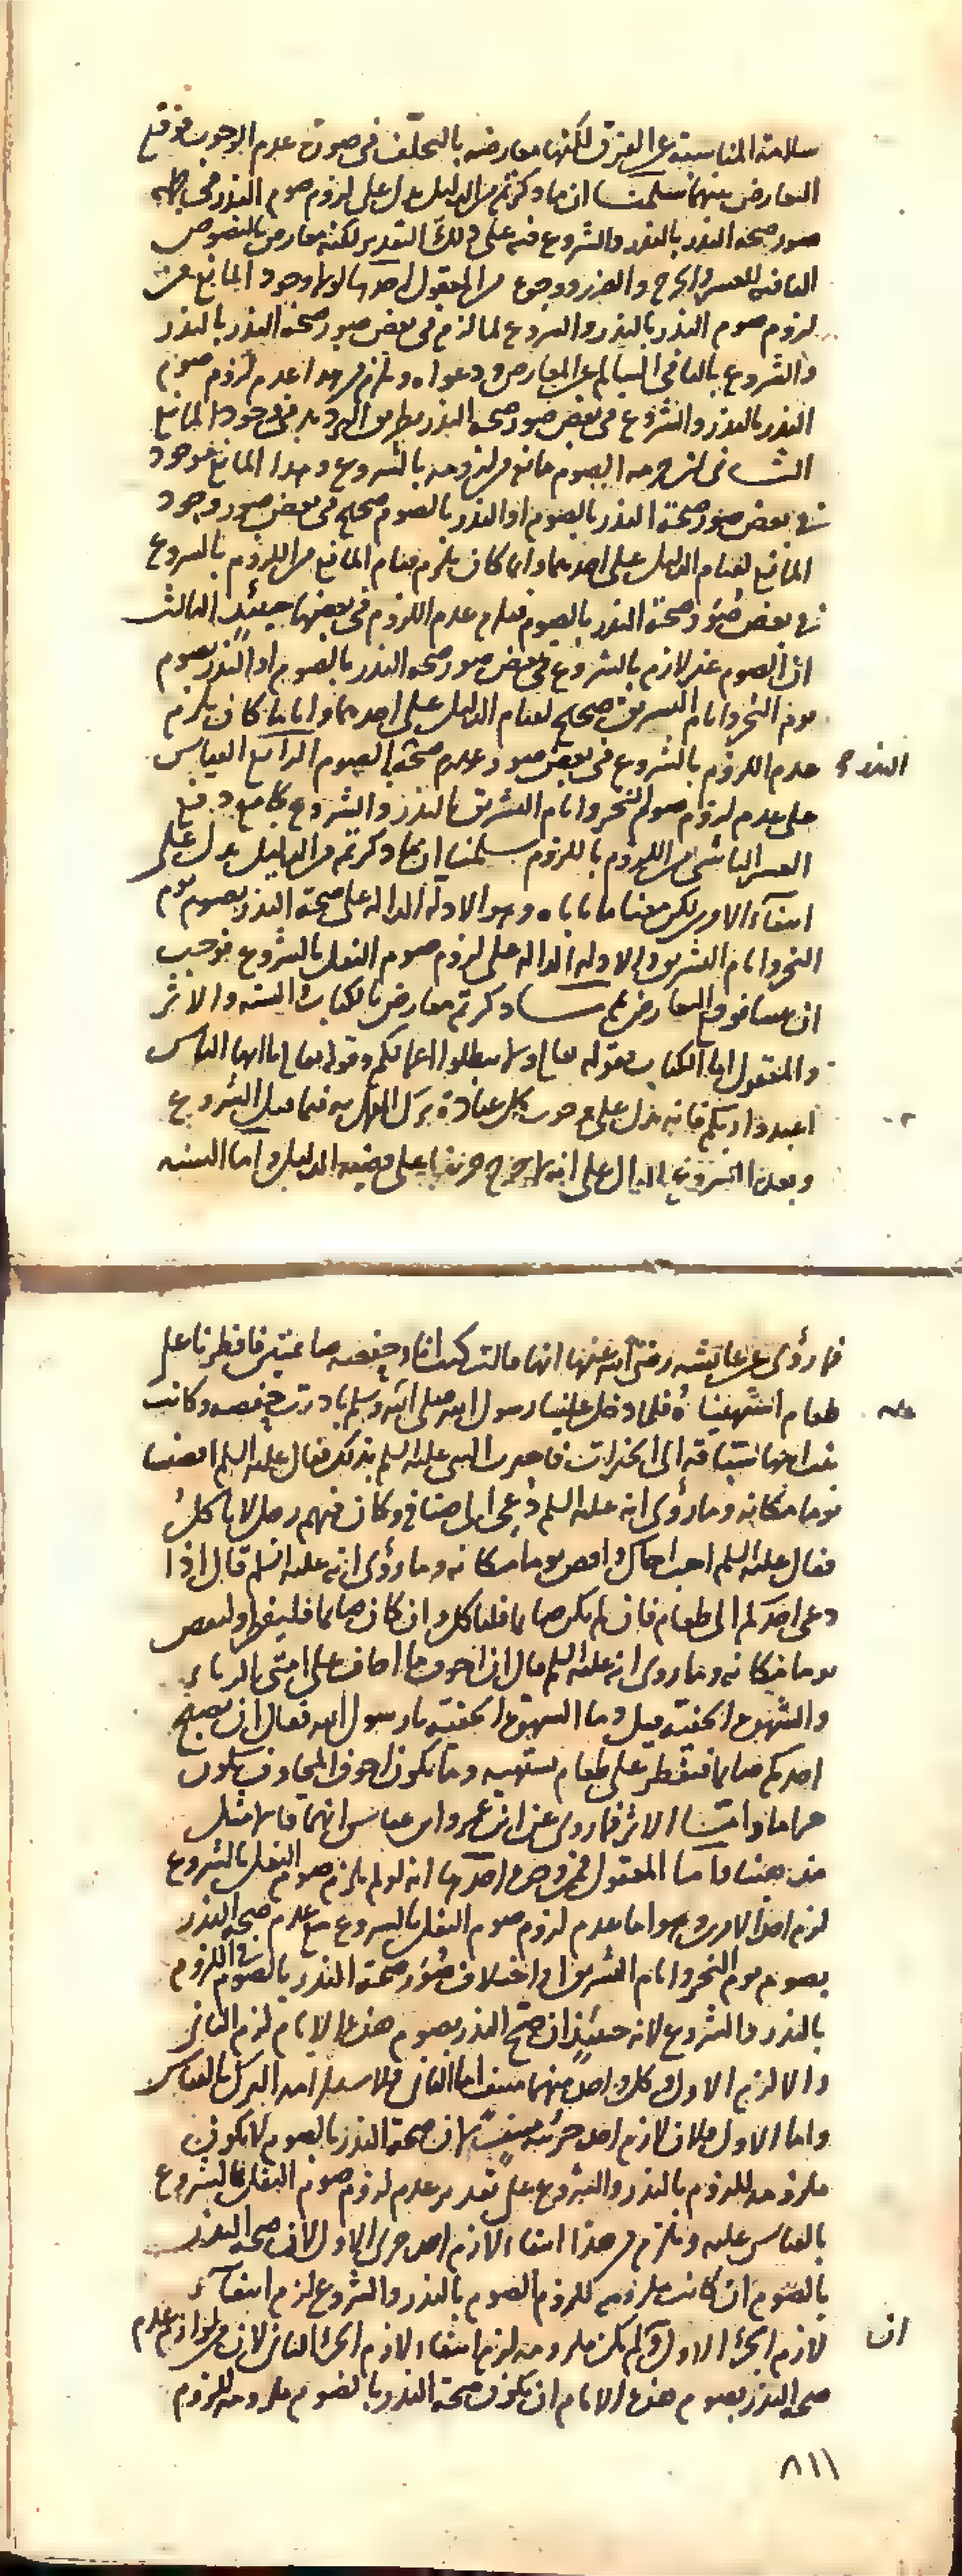 سلامة المناسبة عن الفرق لكنها معارضة بالتخلف في صورة عدم الوجوب فوقع
التعارض بينهما سلمنا ان ما ذكرتم من الدليل يدل على لزوم صوم النذر في
صور صحة النذر بالنذر والشروع فيه على ذلك التقدير لكنه معارض بالنصوص
النافية للعسر والحرج والضرر ووجوه من المعقول احدها لولا وجود المانع من
لزوم صوم النذر بالنذر والشروع لما لزم في بعض صور صحة النذر بالنذر
والشروع بالنافي السالم عن المعارض ودعواه ويلزم من هذا عدم لزوم صوم
النذر بالنذر والشروع في بعض صور صحة النذر بطريق الترديد في وجود المانع
الثاني ان حرمة الصوم مانع من لزومه بالشروع وهذا المانع موجود
في بعض صور صحة النذر بالصوم او النذر بالصوم صحيح في بعض صور وجود
المانع لقيام الدليل على احدهما وايا كان يلزم قيام المانع من اللزوم بالشروع
في بعض صور صحة النذر بالصوم فيلزم عدم اللزوم في بعضها حينئذ الثالث
ان الصوم غير لازم بالشروع في بعض صور صحة النذر بالصوم او النذر بصوم
يوم النحر وايام التشريق صحيح لقيام الدليل على احدهما وايا ما كان يلزم
عدم اللزوم بالشروع في بعض صور عدم صحة بالصوم الرابع القياس
النذر صح
على عدم لزوم صوم النحر وايام التشريق بالنذر والشروع بجامع دفع
العسر الناشي من اللزوم باللزوم سلمنا ان ما ذكرتم من الدليل يدل على
انتفاء الامرين لكن معنا ما ياباه وهو الادلة الدالة على صحة النذر بصوم يوم
النحر وايام التشريق والادلة الدالة على لزوم صوم النفل بالشروع فوجب
ان التعارض ثم ما ذكرتم معارض بالكتاب والسنة والاثر
والمعقول اما الكتاب فقوله تعالى ولا تبطلوا اعمالكم وقوله تعالى يا ايها الناس
اعبدوا ربكم فانه يدل على وجوب كل عبادة ترك العمل به فيما قبل الشروع
وبعد الشروع الدال على انه لا يخرج فيبقى على قضية الدليل واما السنة
فما روي عن عايشة رضي الله عنها انها قالت كنت انا وحفصة صائمتين فافطرنا على
طعام اشتهيناه فلما دخل علينا رسول الله صلى الله وسلم بادرت حفصة وكانت
عليه
بنت ابيها سباقة الى الخيرات فاخبرت النبي عليه السلم بذلك فقال عليه السلم اقضيا
يوما مكانه وما روي انه عليه السلم دعي الى ضيافة وكان فيهم رجل لا ياكل
فقال عليه السلم اجب اخاك واقض يوما مكانه وما روي انه عليه السلم قال اذا
دعي احدكم الى طعام فان لم يكن صايما فلياكل وان كان صايما فليفطر وليقض
يوما مكانه وما روي انه عليه السلم قال ان اخوف ما اخاف على امتي الرياء
والشهوة الخفية قيل وما الشهوة الخفية يا رسول الله فقال ان يصبح
احدكم صايما فيفطر على طعام يشتهيه وما يكون اخوف المخاوف يكون
حراما واما الاثر فما روي عن ابن عمر وابن عباس انهما قالا مثل
مذهبنا واما المعقول فمن وجوه احدها انه لو لم يلزم صوم النفل بالشروع
لزم احد الامرين وهو اما عدم لزوم صوم النفل بالشروع مع عدم صحة النذر
بصوم يوم النحر وايام التشريق او اختلاف صور صحة النذر بالصوم في اللزوم
بالنذر والشروع لانه حينئذ ان صح النذر بصوم هذه الايام لزم الثاني
والا لزم الاول وكل واحد منهما منتف اما الثاني فلاستلزامه الترك بالقياس
واما الاول فلان لازم احد جزئيه منتف لان صحة النذر بالصوم لا يكون
ملزومة للزوم بالنذر والشروع على تقدير عدم لزوم صوم النفل بالشروع
بالقياس عليه ويلزم من هذا انتفاء لازم احد جزئي الاول لان صحة النذر
بالصوم ان كانت ملزومة للزوم الصوم بالنذر والشروع لزم انتفاء
لازم الجزء الاول وان لم يكن ملزومة لزم انتفاء لازم الجزء الثاني لان من لوازم عدم
ان
صحة النذر بصوم هذه الايام ان يكون صحة النذر بالصوم ملزومة للزوم
٨١١